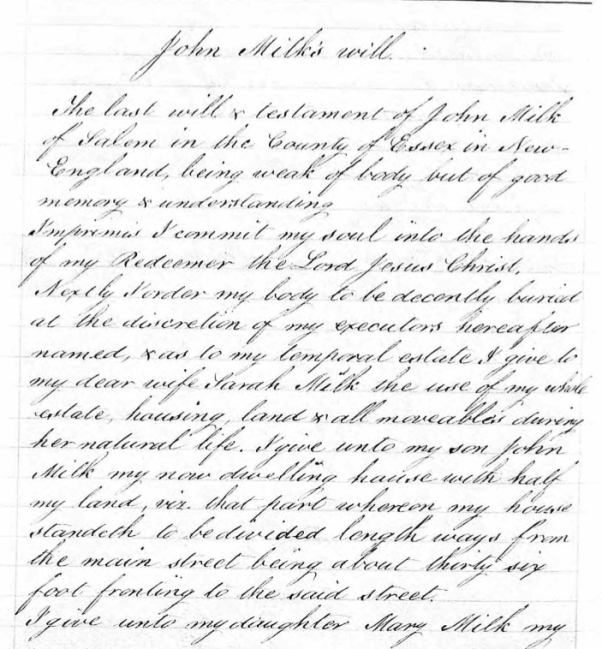 John Milk's will.
The last will & testament of John Milk
of Salem in the County of Essex in New-
England, being weak of body but of good
memory & understanding
Imprimis I commit my soul into the hands
of my Redeemer the Lord Jesus Christ.
Nextly I order my body to be decently buried
at the discretion of my executors hereafter
named, & as to my temporal estate I give to
my dear wife Sarah Milk the use of my whole
estate, housing, land & all moveables during
her natural life. I give unto my son John
Milk my now dwelling house with half
my land, viz. that part whereon my house
standeth to be divided length ways from
the main street being about thirty six
foot fronting to the said street.
I give unto my daughter Mary Milk my